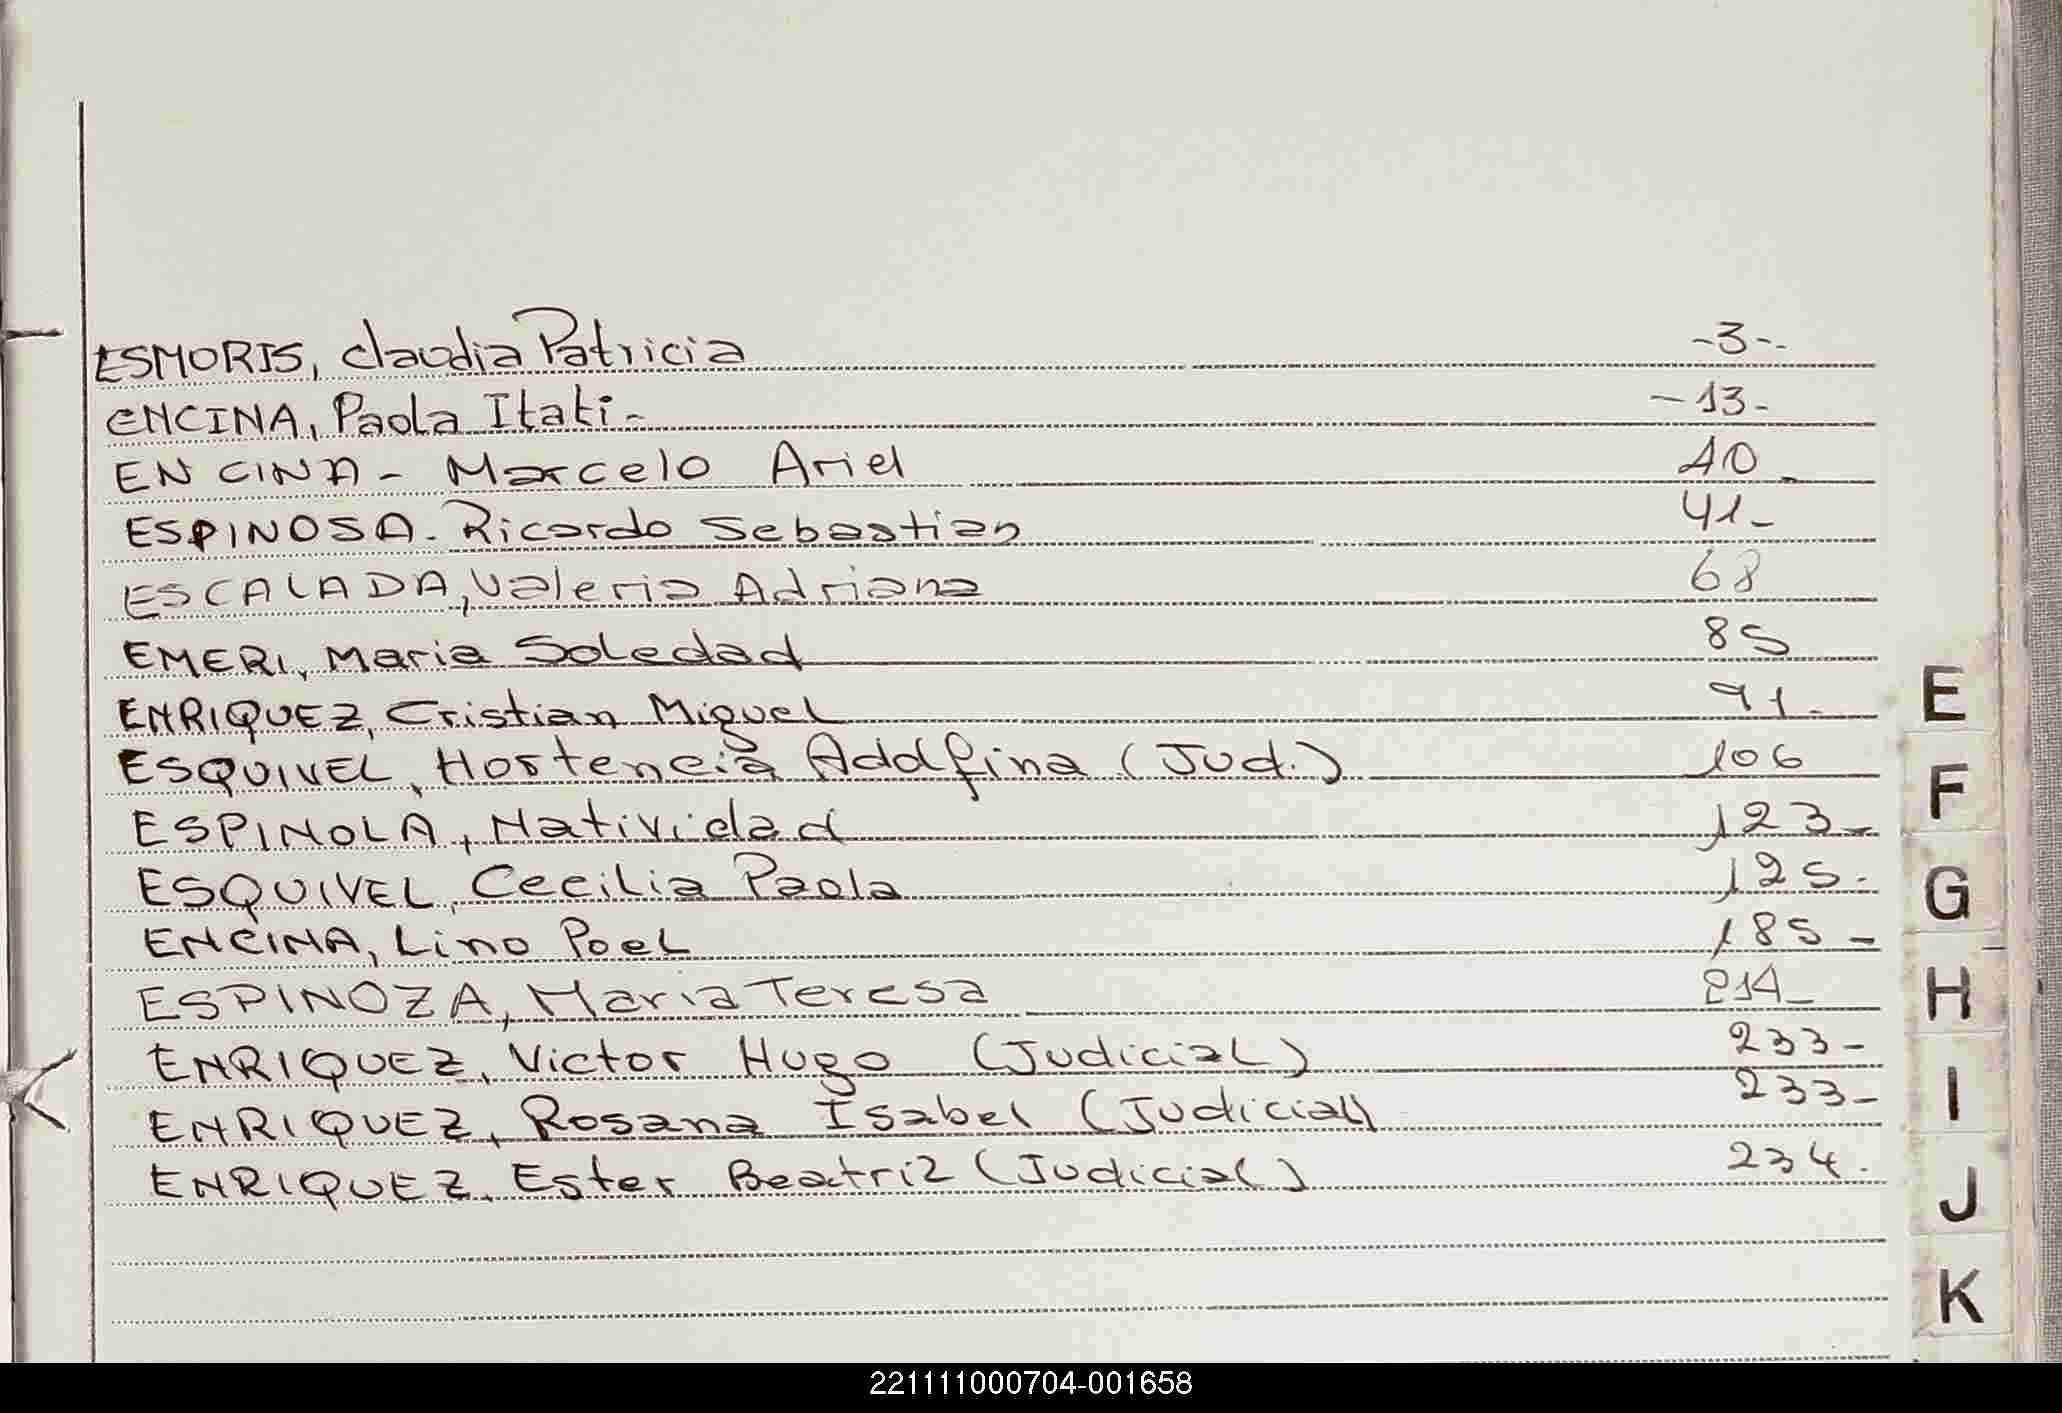 ESMORIS, Claudia Patricia -3--
ENCINA, Paola Itati- -13-
ENCINA - Marcelo Ariel 40_
ESPINOSA - Ricardo Sebastian 41-
ESCALADA, Valeria Adriana 68
EMERI, Maria Soledad 85
ENRIQUEZ, Cristian Miguel 91.
ESQUIVEL, Hortencia Adolfina (Jud.) 106
ESPINOLA, Natividad 123-
ESQUIVEL, Cecilia Paola 125.
ENCINA, Lino Poel 185-
ESPINOZA, Maria Teresa 214_
ENRIQUEZ, Victor Hugo (Judicial) 233-
ENRIQUEZ, Rosana Isabel (Judicial) 233-
ENRIQUEZ, Ester Beatriz (Judicial) 234.
E
F
G
H
I
J
K
221111000704-001658